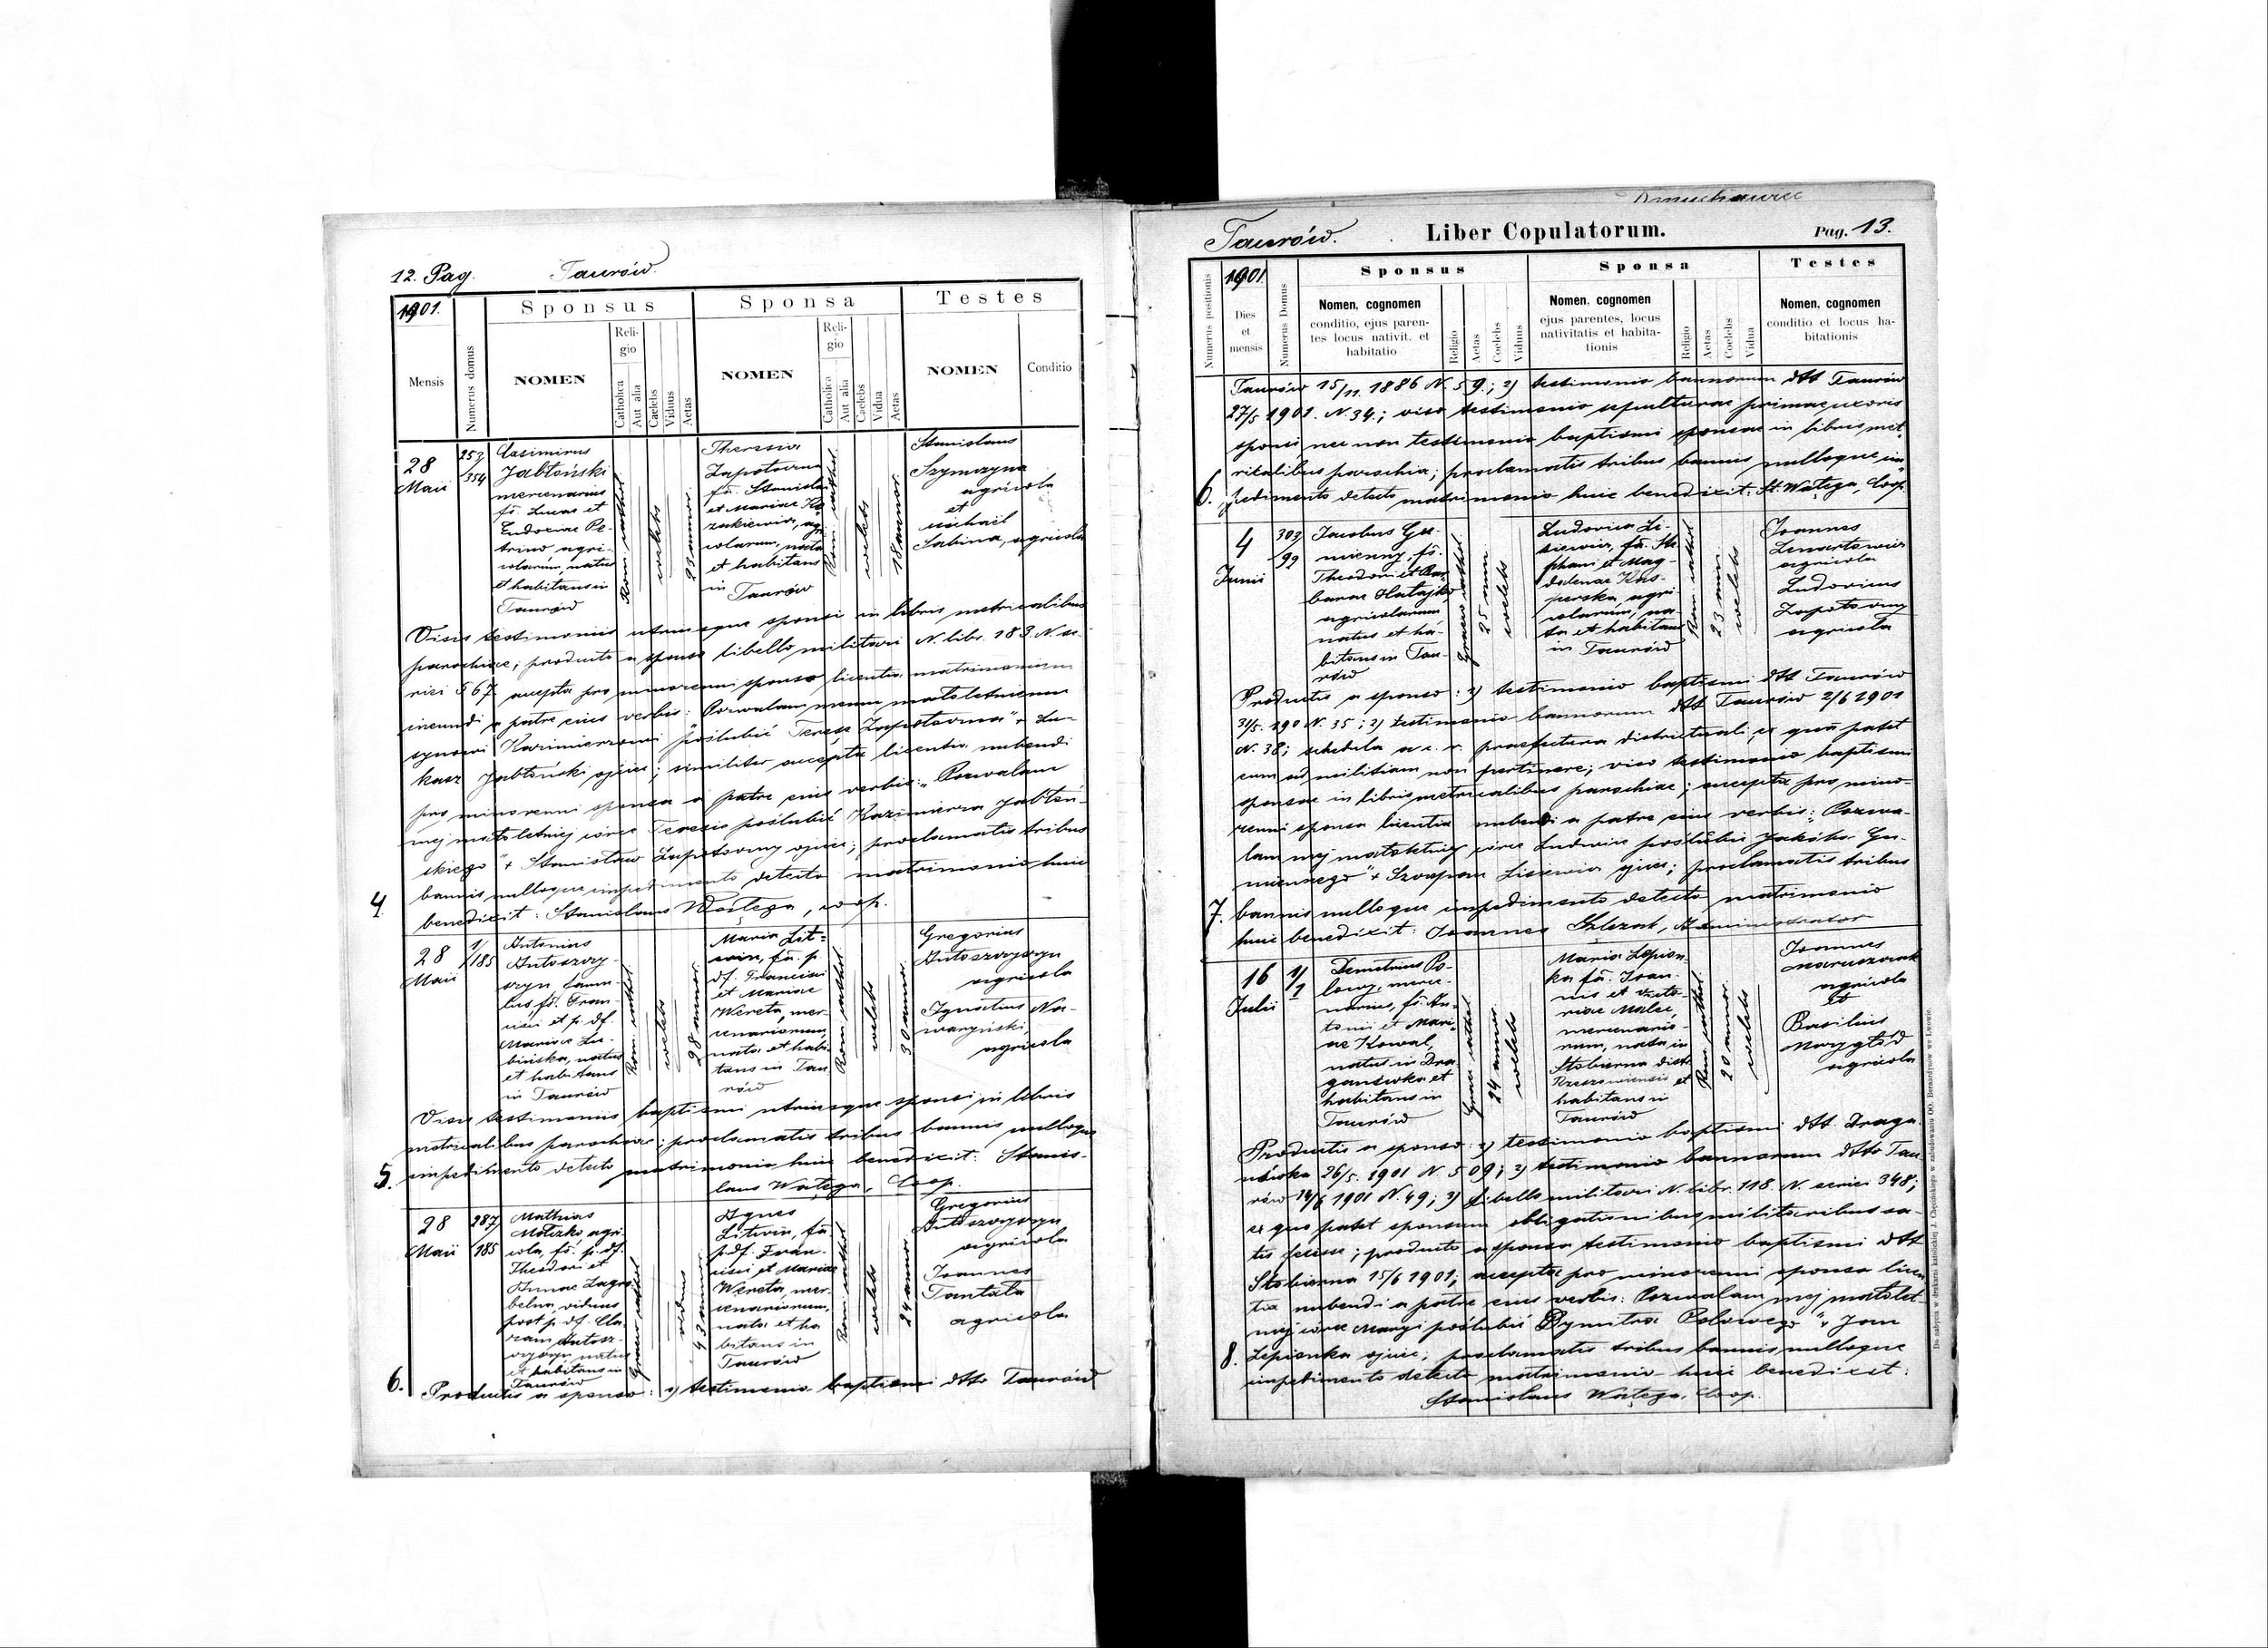 12. Pag. Taurów
1901.
Mensis
Numerus domus
Sponsus
NOMEN
Religio
Catholica
Aut alia
Caelebs
Viduus
Aetas
Sponsa
NOMEN
Religio
Catholica
Aut alia
Caelebs
Vidua
Aetas
Testes
NOMEN
Conditio
28
Maii
253/354
Casimirus
Jabłoński
mercenarius
fs. Lucas et
Eudoxiae Pe-
trino agri-
colarum, natus
et habitans in
Taurów
Rom. cathol.
coelebs
23 annor.
Theresia
Zapotoczna
fa. Stanislai
et Mariae
et habitans
in Taurów
Rom. cathol.
coelebs
18 annor.
Stanislaus
Szymczyna
agricola
et
Michaël
Sabina, agricola
Visis testimoniis utriusque sponsi in libris metricalibus
parochiae; producto a sponso libello militari N. libr. 183. N. se-
riei 567. accepta pro minorenni sponso licentia matrimonium
ineundi a patre eius verbis: Pozwalam memu małoletniemu
synowi Kazimierzowi poślubić Teresę Zapotoczna" + Łu-
kasz Jabłoński ojciec; similiter accepta licentia nubendi
pro minorenni sponsa a patre eius verbis: „Pozwalam
mej małoletniej córce Teresie poślubić Kazimierza Jabłoń-
skiego" + Stanisław Zapotoczny ojciec; proclamatis tribus
bannis nulloque impedimento detecto matrimonio huic
4. benedixit: Stanislaus Wałęga, coop.
28
Maii
1/185
Antonius
Antoszczy-
szyn, famu-
lus fs. Fran-
cisci et p. df.
Mariae Lu-
bińska, natus
et habitans
in Taurów
Rom. cathol.
coelebs
28 annor.
Maria Lit-
win, fa. p.
df. Francisci
et Mariae
Wereta, mer-
cenariorum,
nata et habi-
tans in Tau-
rów
Rom. cathol.
coelebs
30 annor.
Gregorius
Antoszczyszyn
agricola
Ignatius Na-
waryński
agricola
Visis testimoniis baptismi utriusque sponsi in libris
metricalibus parochiae; proclamatis tribus bannis nulloque
5. impedimento detecto matrimonio huic benedixit: Stanis-
laus Wałęga, Coop.
28
Maii
287/185
Mathias
Motzko, agri-
cola, fs. p. df.
Theodori et
Annae Zagro-
belna, viduus
post p. df. Cla-
ram Antosz-
czyszyn natus
et habitans in
Taurów
Graeco cathol.
viduus
43 annor.
Agnes
Litwin, fa.
p. df. Fran-
cisci et Mariae
Wereta, mer-
cenariorum,
nata et ha-
bitans in
Taurów
Rom. cathol.
coelebs
24 annor.
Gregorius
Antoszczyszyn
agricola
Joannes
Tantala
agricola
6. Productis a sponso: 1) testimonio baptismi dtto Taurów
Taurów. Liber Copulatorum. Pag. 13.
Numerus positionis
1901
Dies
et
mensis
Numerus Domus
Sponsus
Nomen, cognomen
conditio, ejus paren-
tes locus nativit. et
habitatio
Religio
Aetas
Coelebs
Viduus
Sponsa
Nomen, cognomen
ejus parentes, locus
nativitatis et habita-
tionis
Religio
Aetas
Coelebs
Vidua
Testes
Nomen, cognomen
conditio et locus ha-
bitationis
Taurów 15/11. 1886 N. 59.; 2) testimonio bannorum dtt Taurów
27/5 1901. N. 34.; viso testimonio sepulturae primae uxoris
sponsi, nec non testimonio baptismi sponsae in libris met-
ricalibus parochiae; proclamatis tribus bannis nulloque im-
6. pedimento detecto matrimonio huic benedixit: St. Wałęga, Coop.
4
Junii
303/99
Jacobus Gu-
mienny, fs.
Theodori et Bar-
barae Hałajko
agricolarum
natus et ha-
bitans in Tau-
rów
Graeco cathol.
25 ann.
coelebs
Ludovica Li-
siewicz, fa. Ste-
phani et Mag-
dalenae Kas-
perska, agri-
colarum, na-
ta et habitans
in Taurów
Rom. cathol.
23 ann.
coelebs
Joannes
Lenartowicz
agricola
Ludovicus
Zapotoczny
agricola
Productis a sponso: 1) testimonio baptismi dtt Taurów
31/5. 190 N. 35; 2) testimonio bannorum dtt Taurów 2/6 1901
N. 38; schedula a c. r. praefectura districtuali, ex qua patet
eum ad militiam non pertinere; viso testimonio baptismi
sponsae in libris metricalibus parochiae; accepta pro mino-
renni sponsa licentia nubendi a patre eius verbis: Pozwa-
lam mej małoletniej córce Ludwice poślubić Jakóba Gu-
miennego" + Szczepan Lisiewicz ojciec; proclamatis tribus
7. bannis nulloque impedimento detecto matrimonio
huic benedixit: Joannes Ślęzak, Administrator
16
Julii
1/1
Demetrius Po-
lowy, merce-
narius, fs. An-
tonii et Mari-
ae Kowal,
natus in Dra-
ganówka et
habitans in
Taurów
Graeco cathol.
24 annor.
coelebs
Maria Lepion-
ka fa. Joan-
nis et Victo-
riae Malec,
mercenario-
rum, nata in
Stobierna distr.
Rzeszoviensis et
habitans in
Taurów
Rom. cathol.
20 annor.
coelebs
Joannes
Maruszczak
agricola
et
Basilius
Marygłód
agricola
Productis a sponso: 1) testimonio baptismi dtt. Draga-
nówka 26/5. 1901 N 509; 2) testimonio bannorum dtto Tau-
rów 14/6 1901 N. 49; 3) libello militari N. libr. 118. N. seriei 348;
ex quo patet sponsum obligationibus militaribus sa-
tis fecisse; producto a sponsa testimonio baptismi dtt
Stobierna 15/6 1901; accepta pro minorenni sponsa licen-
tia nubendi a patre eius verbis: Pozwalam mej małolet-
niej córce Maryi poślubić Dymitra Polowego" + Jan
8. Lepionka ojciec; proclamatis tribus bannis nulloque
impedimento detecto matrimonio huic benedixit:
Stanislaus Wałęga, Coop.
Do nabycia w drukarni katolickiej J. Chęcińskiego w zabudowaniu OO. Bernardynów we Lwowie.